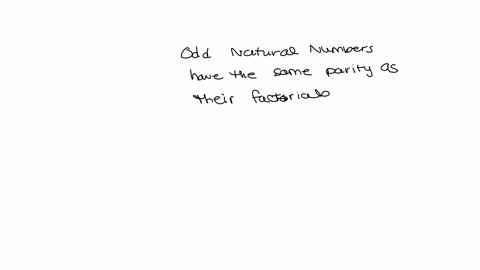 Odd Natural Numbers
have the same parity as
their factorials